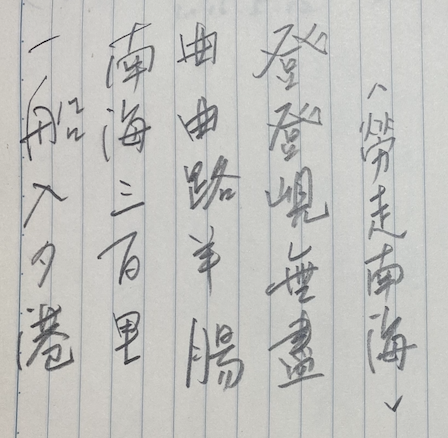 〈勞走南海〉
登登峴無盡
曲曲路羊腸
南海三百里
一船入夕港